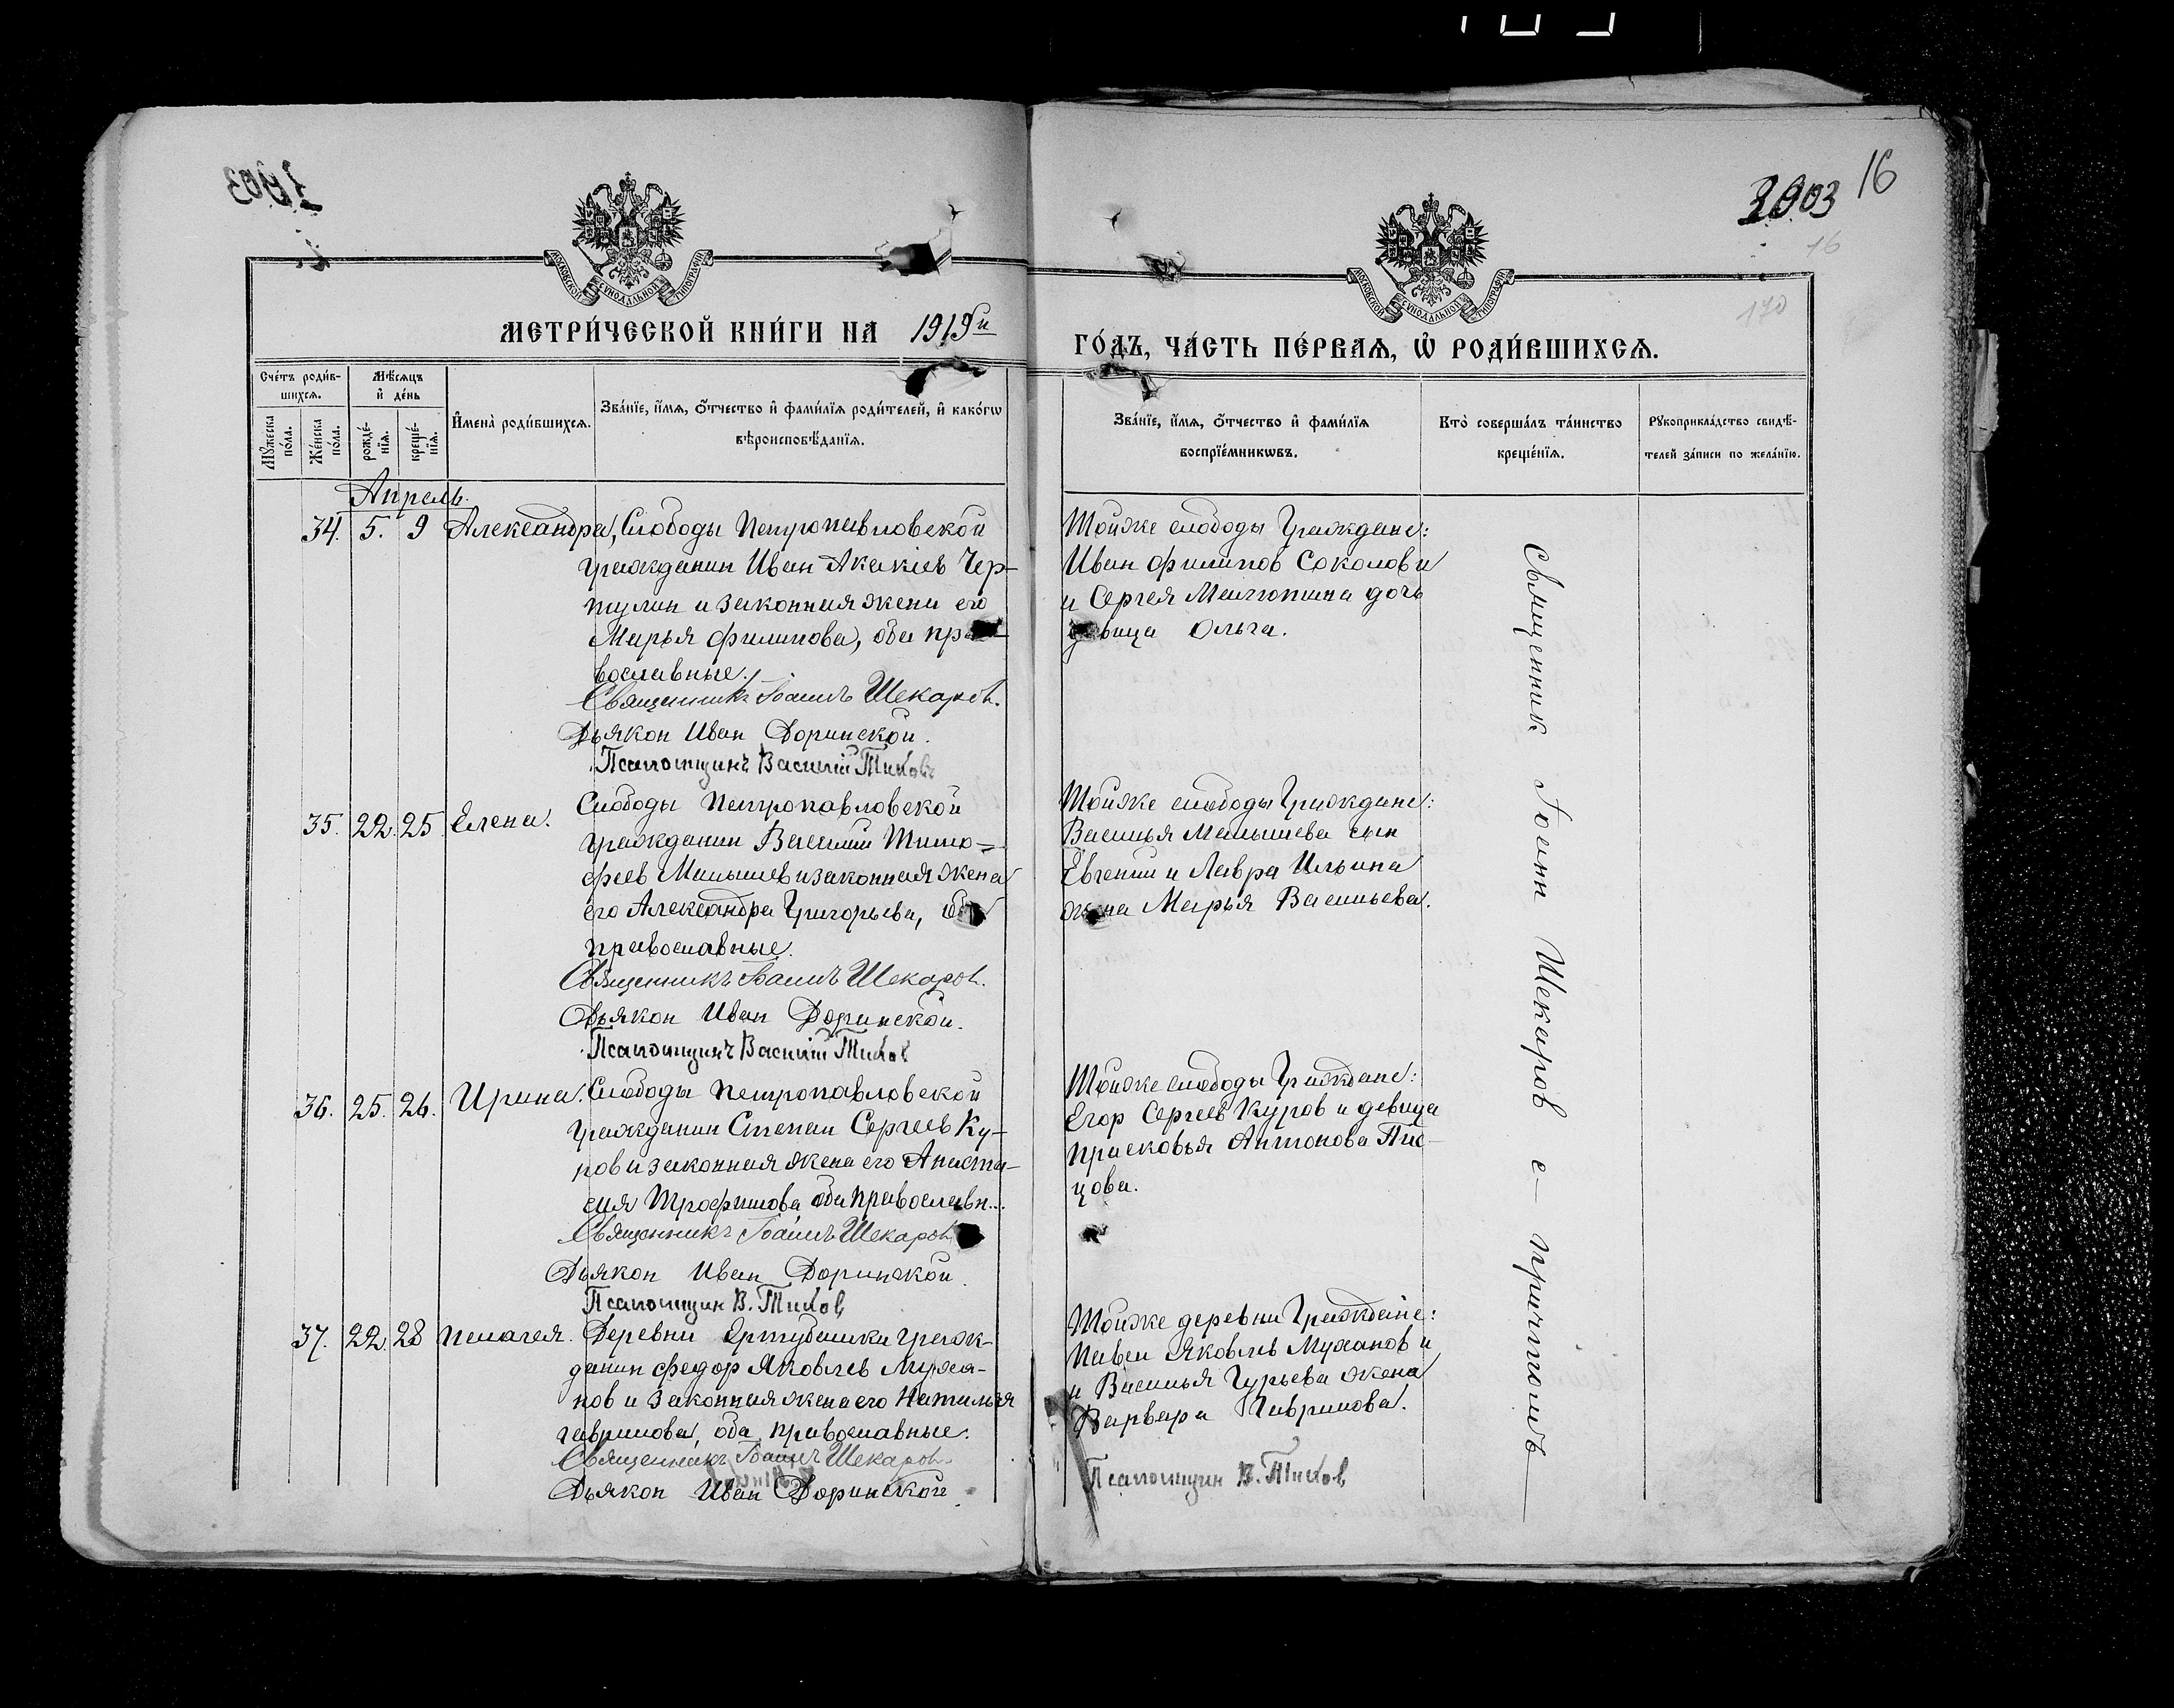 3003 16
16
170
МОСКОВСКОЙ СУНОДАЛЬНОЙ ТИПОГРАФІИ
МОСКОВСКОЙ СУНОДАЛЬНОЙ ТИПОГРАФІИ
МЕТРИ́ЧЕСКОЙ КНИ́ГИ НА 1919й
ГО́ДЪ, ЧА́СТЬ ПЕ́РВАѦ, Ѡ҆ РОДИ́ВШИХСѦ.
Сче́тъ роди́в-
шихсѧ.
Му́жеска по́ла.
Же́нска по́ла.
Мѣ́сѧцъ и҆ де́нь
рожде́-
нїѧ.
креще́-
нїѧ.
И҆мена̀ роди́вшихсѧ.
Зва́нїе, и҆́мѧ, ѻ҆́тчество и҆ фами́лїѧ роди́телей, и҆ како́гѡ
вѣроисповѣ́данїѧ.
Зва́нїе, и҆́мѧ, ѻ҆́тчество и҆ фами́лїѧ
воспрїе́мникѡвъ.
Кто̀ соверша́лъ та́инство
креще́нїѧ.
Рꙋкоприкла́дство свидѣ́-
телей за́писи по жела́нїю.
Апрель.
34. 5. 9 Александра, Слободы Петропавловской
гражданин Иван Акакиев Чер-
тулин и законная жена его
Марья Филипова, оба пра-
вославные.
Священникъ Іоаннъ Шекаров.
Дьякон Иван Доринской.
Псаломщикъ Василій Титовъ
Тойже слободы Граждане:
Иван Филипов Соколов и
и Сергея Малютина дочь
девица Ольга.
35. 22. 25 Елена. Слободы Петропавловской
гражданин Василий Тимо-
феев Малышев и законная жена
его Александра Григорьева, оба
православные.
Священникъ Іоаннъ Шекаров.
Дьякон Иван Доринской.
Псаломщикъ Василій Титов
Тойже слободы Граждане:
Василья Малышева сын
Евгений и Лавра Ильина
жена Марья Васильева.
36. 25. 26. Ирина. Слободы Петропавловской
гражданин Степан Сергеев Ку-
ров и законная жена его Анаста-
сия Трофимова оба православн...
Священникъ Іоаннъ Шекаров
Дьякон Иван Доринской.
Псаломщик В. Титов
Тойже слободы Граждане:
Егор Сергеев Куров и девица
Прасковья Антонова Пис-
цова.
37. 22. 28 Пелагея. Деревни Ертубашки граж-
данин Федор Яковлев Муха-
нов и законная жена его Наталья
Гаврилова, оба православные.
Священникъ Іоаннъ Шекаров.
Дьякон Иван Доринской.
Тойже деревни Граждане:
Павел Яковлев Муханов и
и Василья Гурьева жена
Варвара Гаврилова.
Псаломщик В. Титов
Священник Іоанн Шекаров с причтомъ